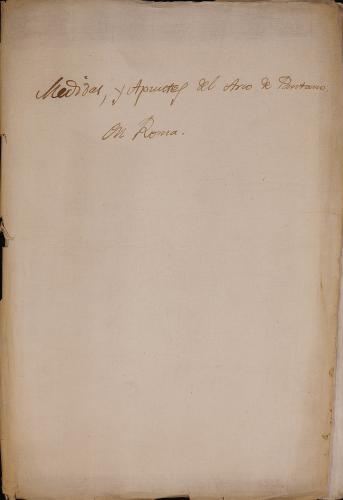 Medidas, y Apuntes del Arco de Pantano,
en Roma.